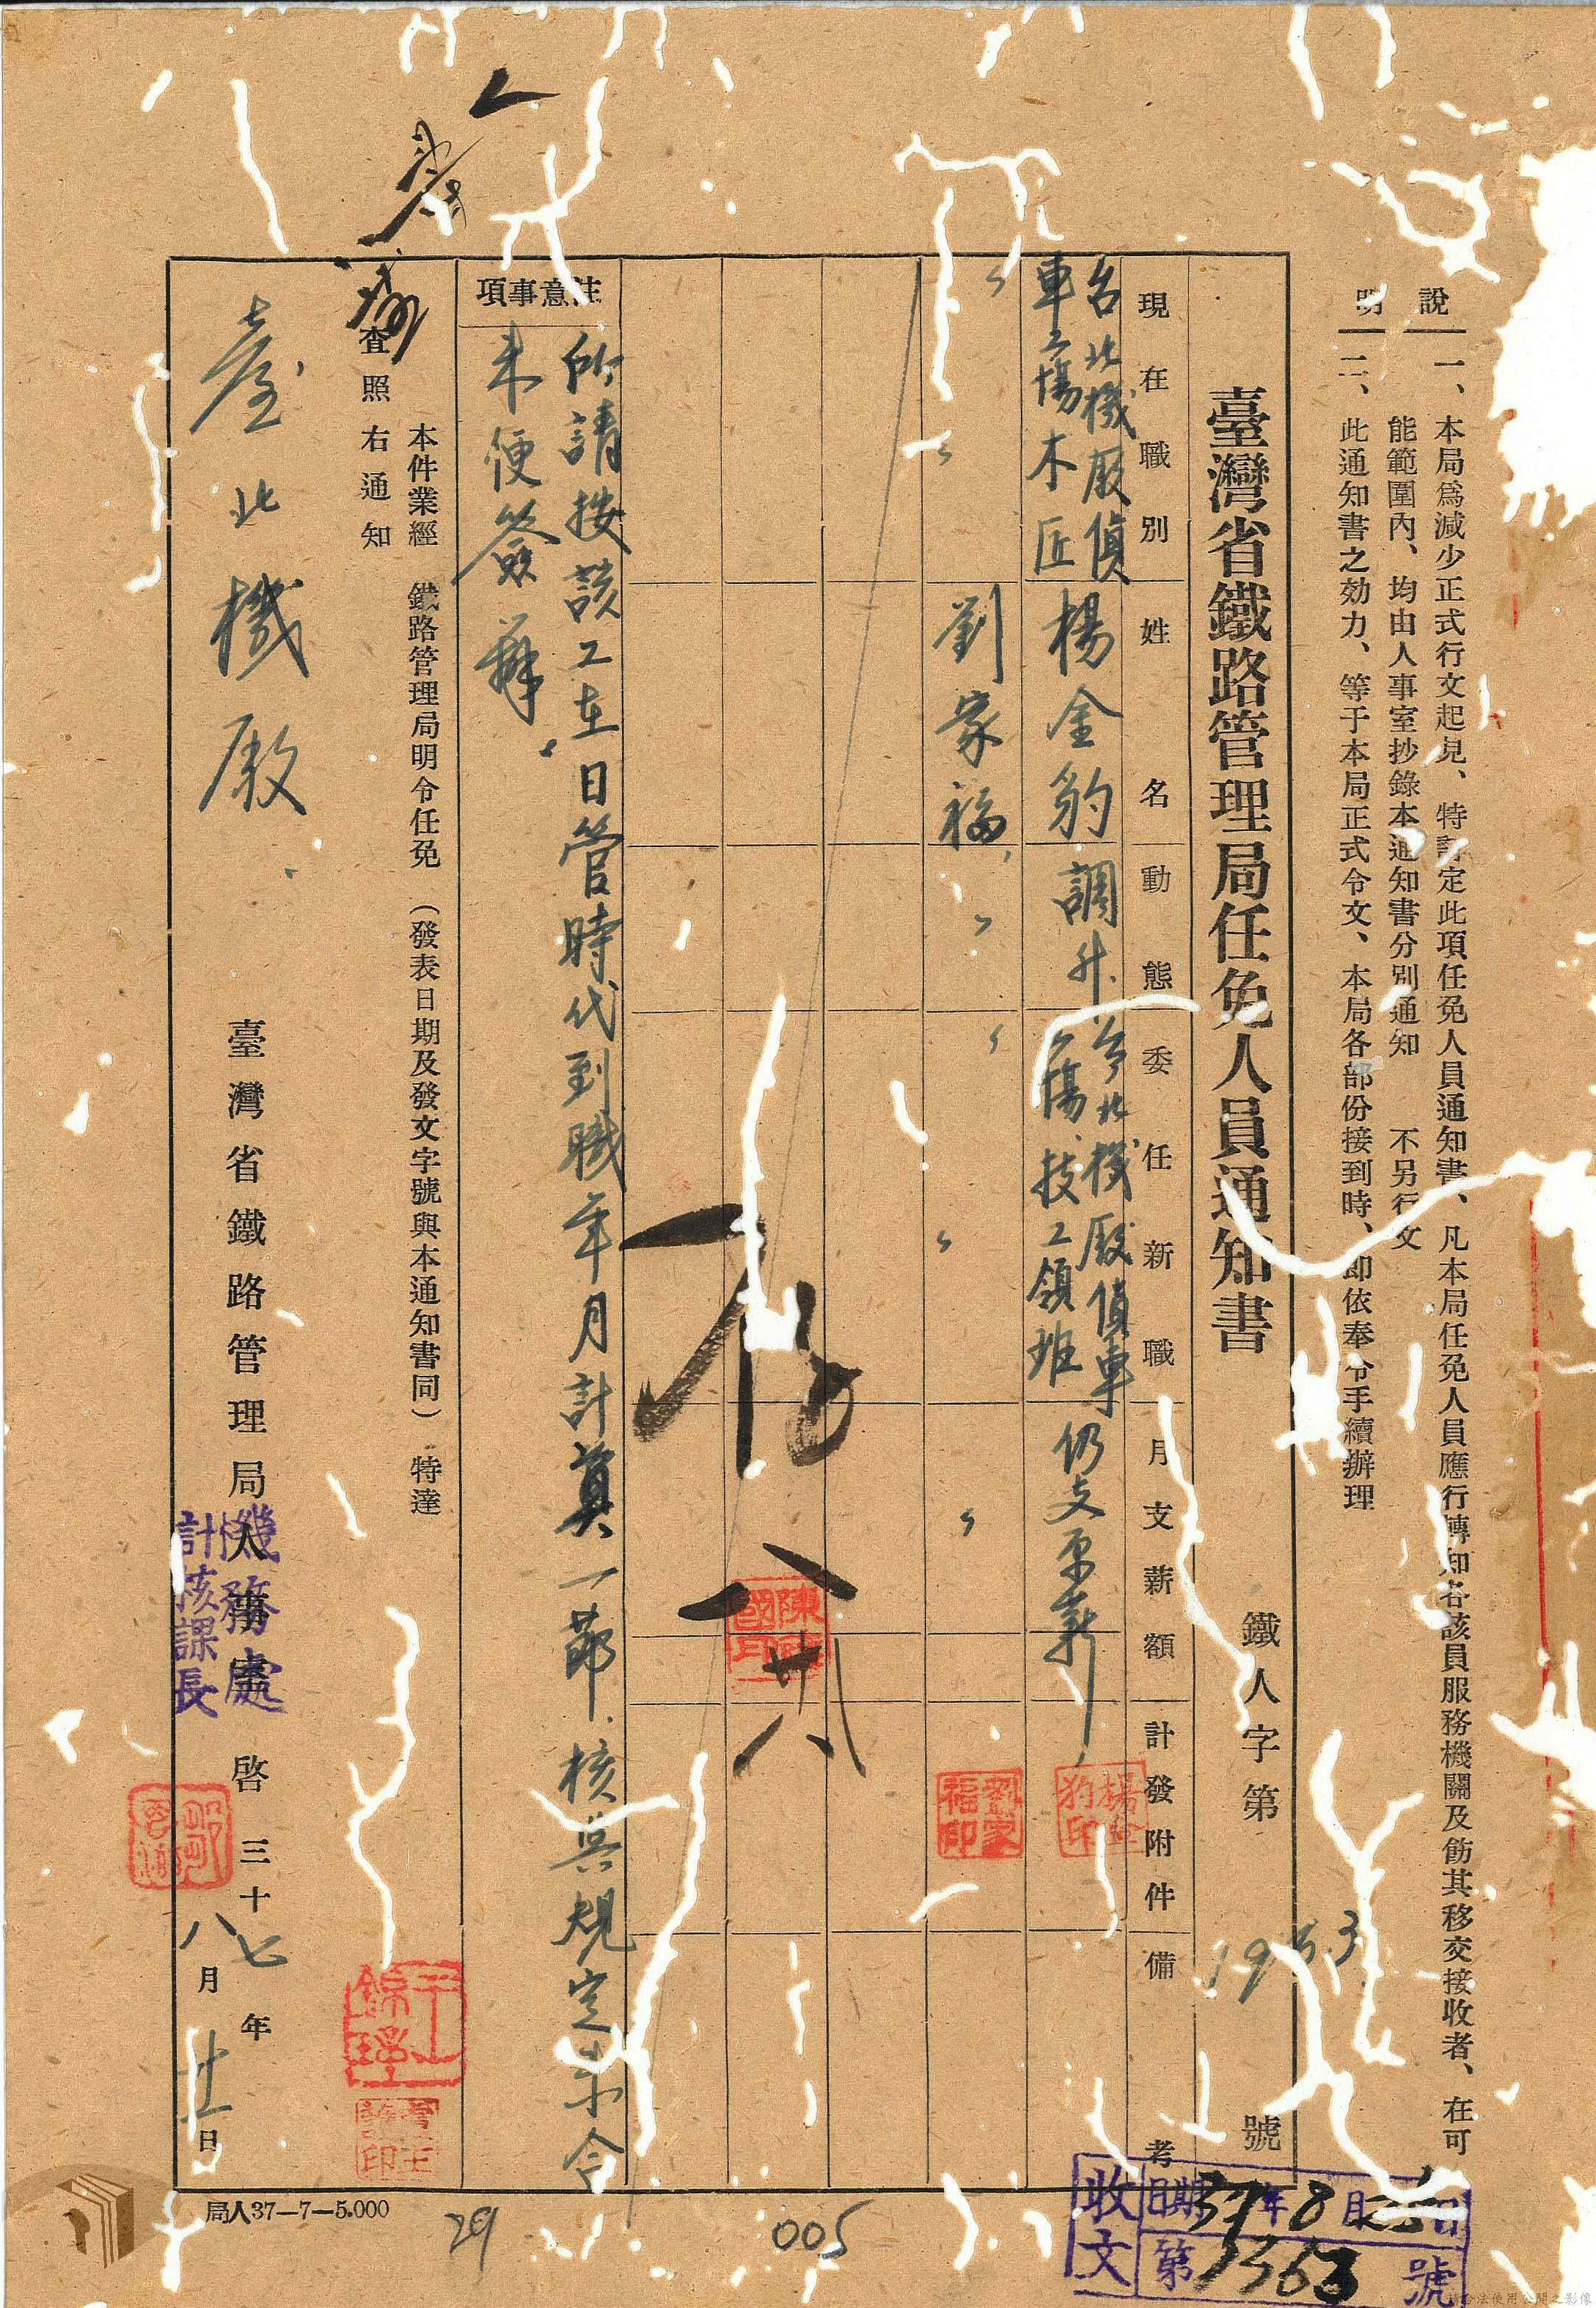 說明
一、本局爲減少正式行文起見、特訂定此項任免人員通知書、凡本局任免人員應行轉知各該員服務機關及飭其移交接收者、在可
能範圍內、均由人事室抄錄本通知書分別通知 不另行文
二、此通知書之効力、等于本局正式令文、本局各部份接到時、即依奉令手續辦理
臺灣省鐵路管理局任免人員通知書
鐵人字第1953號
現在職別 姓名 動態 委任新職 月支薪額 計發附件 備考
台北機廠偵車工場木匠 楊金豹 調升 台北機廠偵車工場技工領班 仍支原薪
劉家福
劉家福印
存
八 廿八
注意事項
所請按該工在日管時代到職年月計算一節核與規定不合
未便簽辦
本件業經 鐵路管理局明令任免(發表日期及發文字號與本通知書同)特達
查照右通知
臺北機廠
臺灣省鐵路管理局人事室啓 三十七年八月廿一日
機務處
計核課長
局人37—7—5.000
29
005
收文
日期37年8月 日
第 號